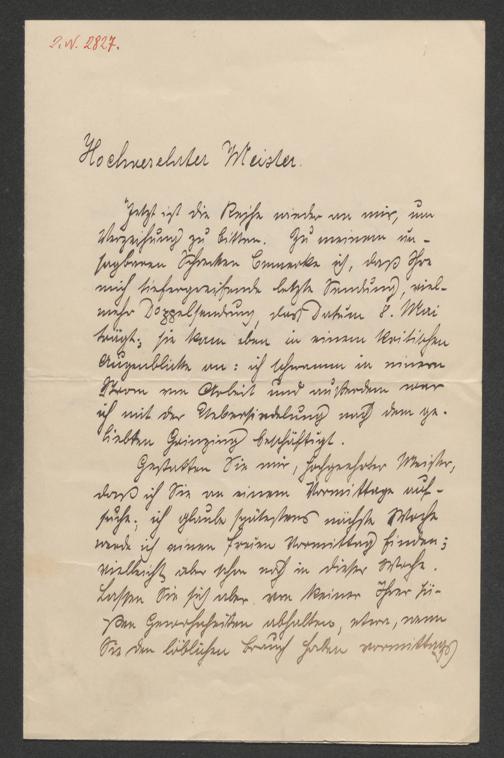 I. N. 2827.
Hochverehrter Meister.
Jetzt ist die Reihe wieder an mir, um
Verzeihung zu bitten. Zu meinem un-
sagbaren Schrecken bemerke ich, daß Ihre
mich tiefergreifende letzte Sendung, viel-
mehr Doppelsendung, das Datum 8. Mai
trägt; sie kam eben in einem kritischen
Augenblicke an: ich schwamm in einem
Strom von Arbeit und außerdem war
ich mit der Uebersiedelung nach dem ge-
liebten Grinzing beschäftigt.
Gestatten Sie mir, hochgeehrter Meister,
daß ich Sie an einem Vormittage auf-
suche; ich glaube spätestens nächste Woche
werde ich einen freien Vormittag finden;
vielleicht aber schon noch in dieser Woche.
Lassen Sie sich aber von keiner Ihrer sü-
ßen Gewohnheiten abhalten, etwa, wenn
Sie den löblichen Brauch haben vormittags